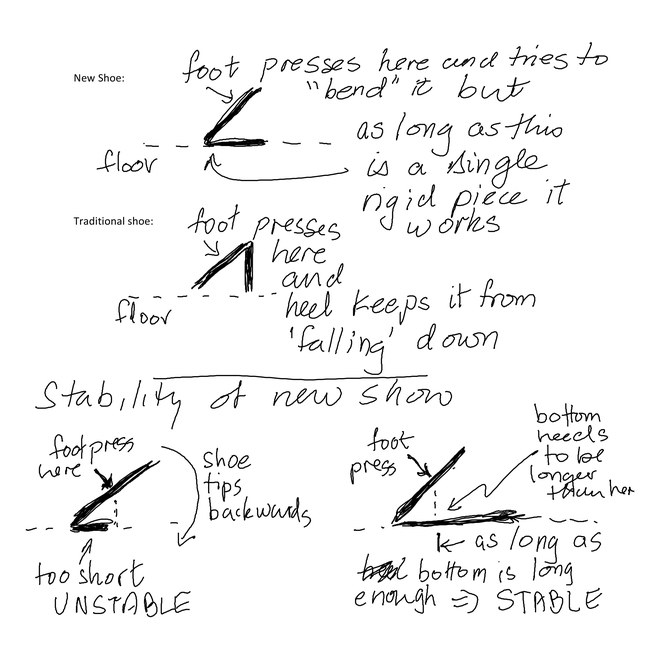 New Shoe:
foot presses here and tries to
"bend" it but
as long as this
is a single
rigid piece it
works
floor
Traditional shoe:
foot presses
here
and
heel keeps it from
'falling' down
floor
Stability of new show
foot press
here
shoe
tips
backwards
too short
UNSTABLE
foot
press
bottom
needs
to be
longer
than her
as long as
bottom is long
enough => STABLE